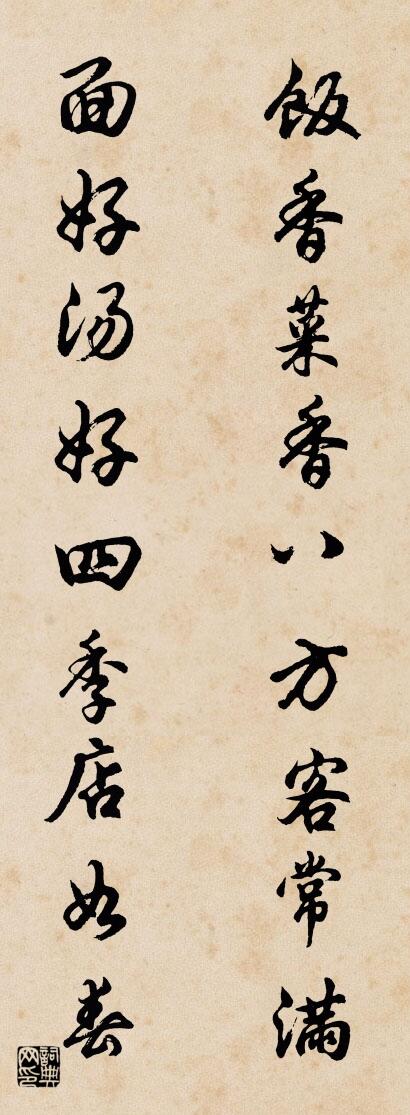 飯香菜香八方客常滿
面好汤好四季店如春
詞典网印